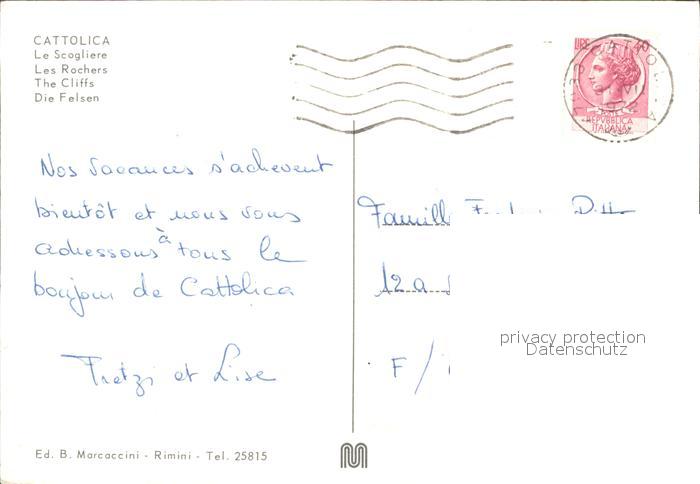 CATTOLICA
Le Scogliere
Les Rochers
The Cliffs
Die Felsen
LIRE 40
REPVBBLICA
ITALIANA
Nos vacances s'achevent
bientôt et nous vous
adressons à tous le
bonjour de Cattolica
et Lise
Famill
12 a
F /
privacy protection
Datenschutz
Ed. B. Marcaccini - Rimini - Tel. 25815